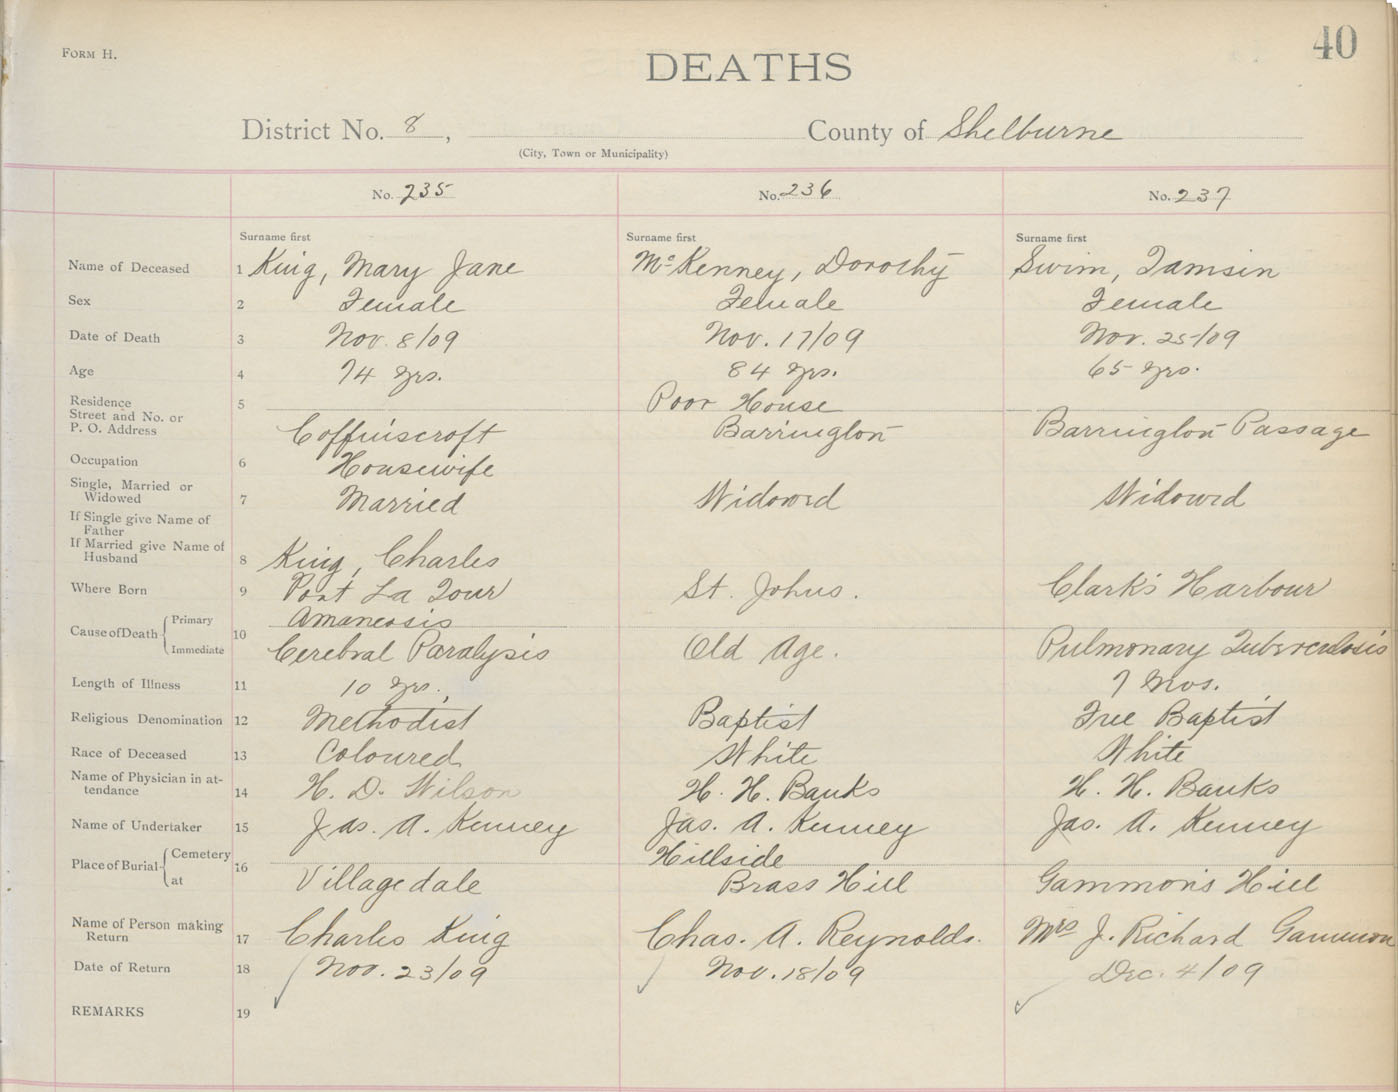 FORM H.
40
DEATHS
District No. 8, County of Shelburne
(City, Town or Municipality)
No. 235 No. 236 No. 237
Surname first Surname first Surname first
Name of Deceased 1 King, Mary Jane McKenney, Dorothy Swim, Tamsin
Sex 2 Female Female Female
Date of Death 3 Nov. 8/09 Nov. 17/09 Nov. 25/09
Age 4 74 yrs. 84 yrs. 65 yrs.
Residence 5 Poor House
Street and No. or
P. O. Address Coffinscroft Barrington Barrington Passage
Occupation 6 Housewife
Single, Married or
Widowed 7 Married Widowed Widowed
If Single give Name of
Father
If Married give Name of
Husband 8 King, Charles
Where Born 9 Port La Tour St. Johns. Clark's Harbour
Cause of Death Primary 10
Immediate Cerebral Paralysis Old Age. Pulmonary Tuberculosis
Length of Illness 11 10 yrs. 7 Mos.
Religious Denomination 12 Methodist Baptist Free Baptist
Race of Deceased 13 Coloured White White
Name of Physician in at-
tendance 14 H. D. Wilson H. H. Banks H. H. Banks
Name of Undertaker 15 Jas. A. Kenney Jas. A. Kenney Jas. A. Kenney
Place of Burial Cemetery 16 Hillside
at Villagedale Brass Hill Gammon's Hill
Name of Person making
Return 17 Charles King Chas. A. Reynolds. Mrs J. Richard Gammon
Date of Return 18 Nov. 23/09 Nov. 18/09 Dec. 4/09
REMARKS 19